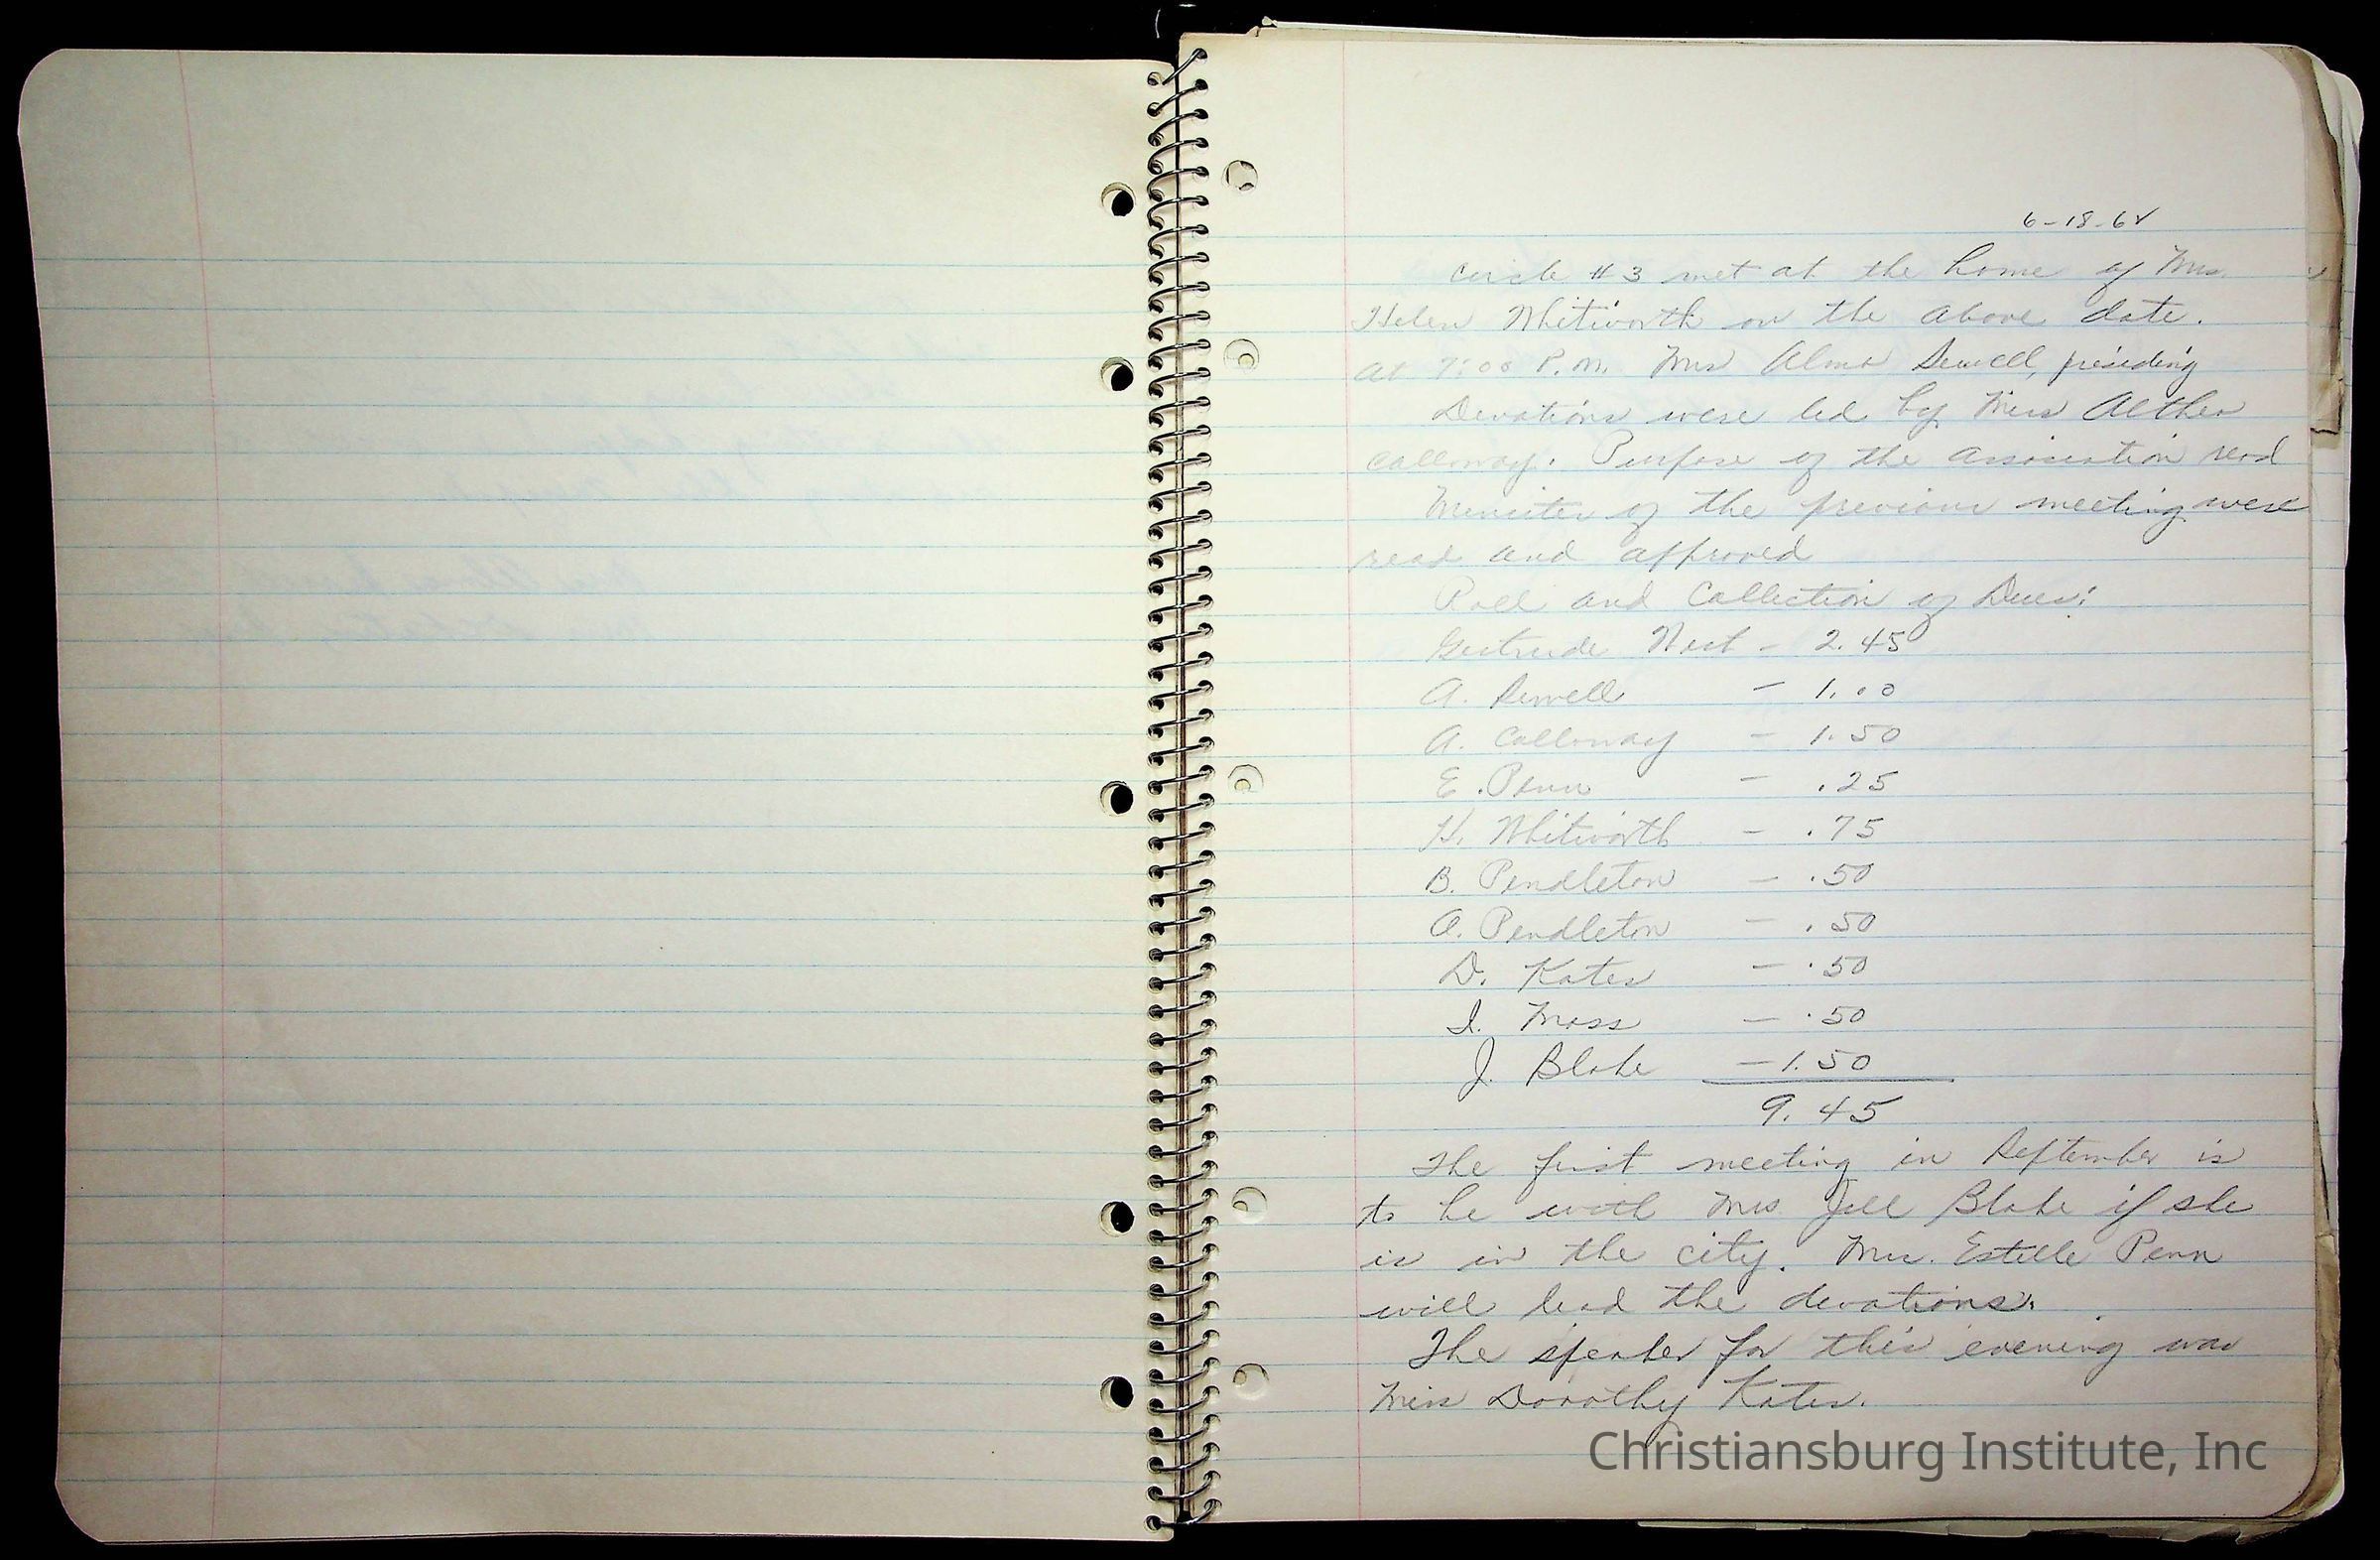 6-18-62
Circle #3 met at the home of Mrs.
Helen Whitworth on the above date.
at 7:00 P.M. Mrs Alma Sewell, presiding
Devotions were led by Miss Althea
Calloway. Purpose of the association read
Minutes of the previous meeting were
read and approved
Roll and Collection of Dues:
Gertrude West - 2.45
A. Sewell - 1.00
A. Calloway - 1.50
E. Penn - .25
H. Whitworth - .75
B. Pendleton - .50
O. Pendleton - .50
D. Kates - .50
I. Moss - .50
J. Blake - 1.50
9.45
The first meeting in September is
to be with Mrs. Jell Blake if she
is in the city. Mrs. Estelle Penn
will lead the devotions.
The speaker for this evening was
Miss Dorothy Kates.
Christiansburg Institute, Inc